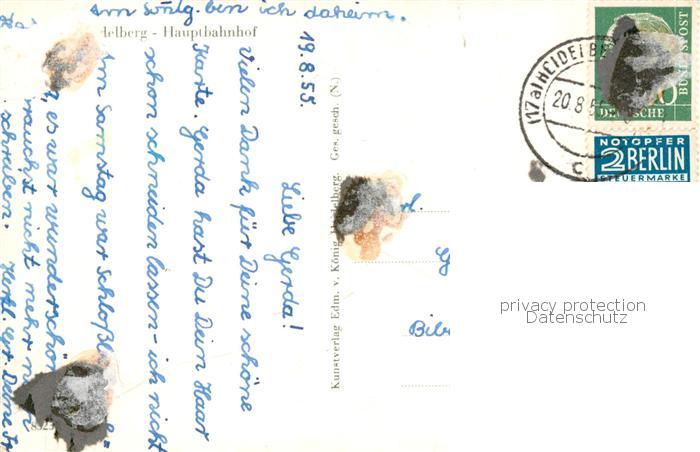 Am Sonntg. ben ich daheim.
delberg - Hauptbahnhof
19.8.55.
Liebe Gerda!
Vielen Dank für Deine schöne
Karte. Gerda hast Du Dein Haar
schon schneiden lassen - ich nicht
Am Samstag war Schloßbe
es war wunderschön
rauchst nicht mehr
schreiben. Herzl. Gr. Deine
8523
Kunstverlag Edm. v. König, Heidelberg. Ges. gesch. (N.)
(17a) HEIDELBE
20.8.5
c
BUNDESPOST
DEUTSCHE
NOTOPFER
2 BERLIN
STEUERMARKE
privacy protection
Datenschutz